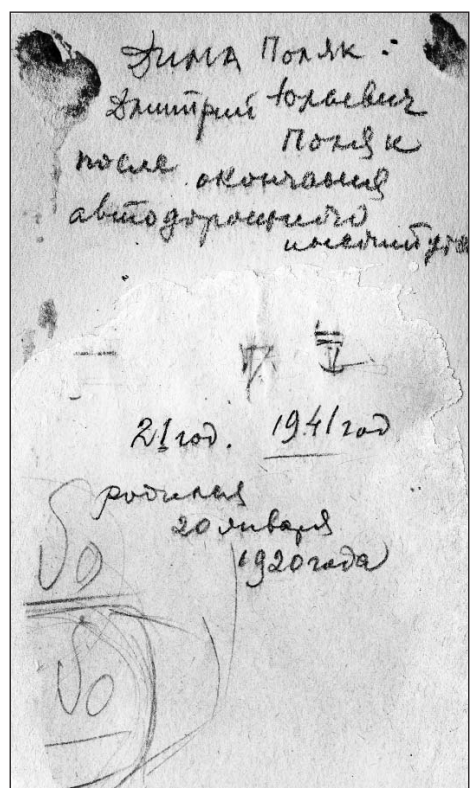 Дима Поляк :
Дмитрий Юльевич
Поляк
после окончания
автодорожного
института
21 год. 1941 год
родился
20 января
1920 года
50
50